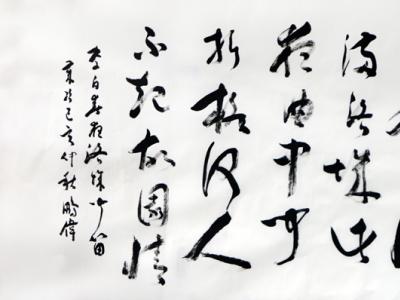 滿洛城此
夜曲中聞
折柳何人
不起故園情
李白春夜洛城聞笛
歲次己亥仲秋鵬偉